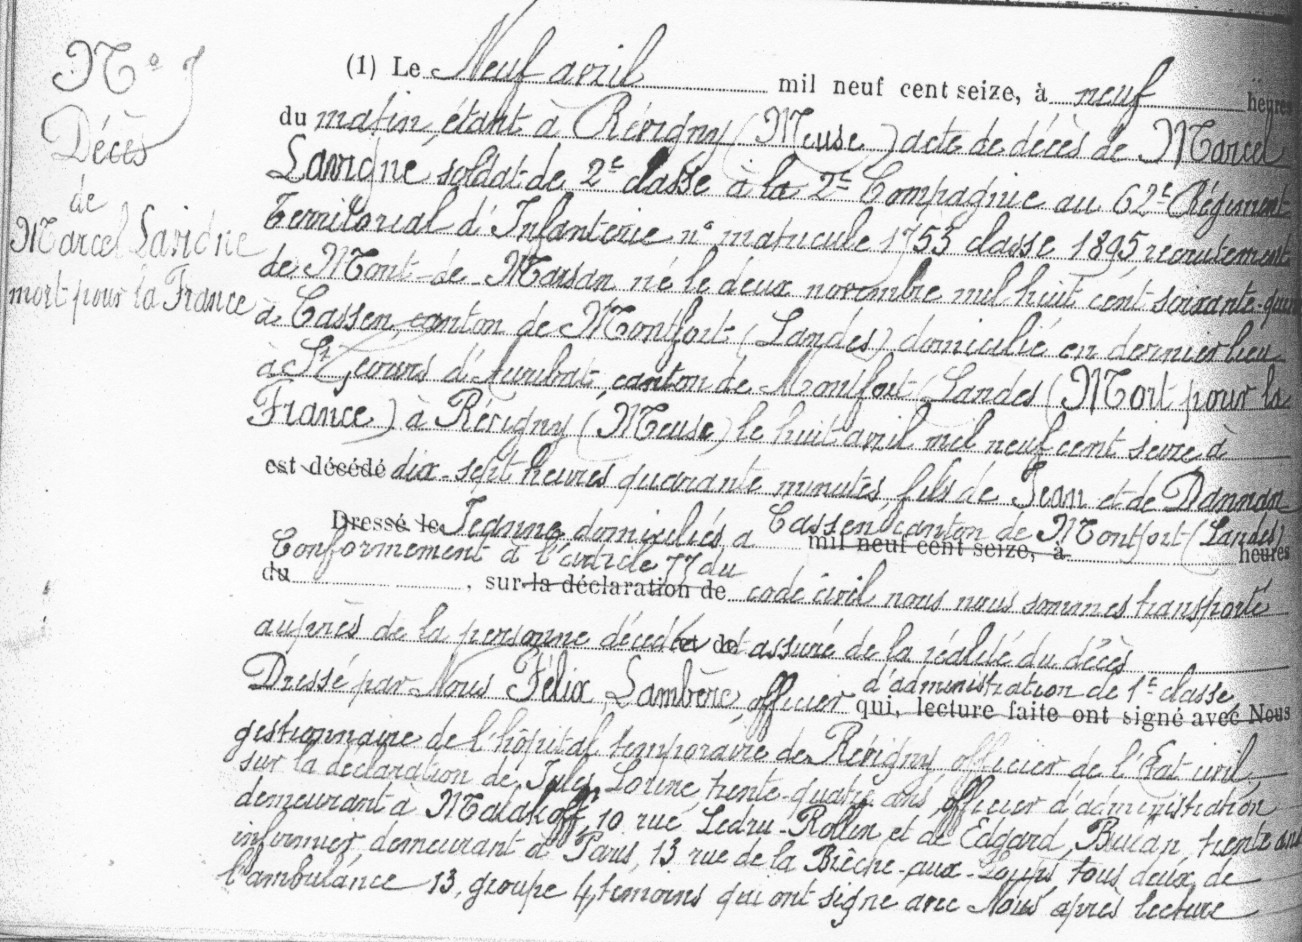 N° 5
Décès
de
Marcel Lavigne
mort pour la France
(1) Le Neuf avril mil neuf cent seize, à neuf heures
du matin, étant à Révigny (Meuse) acte de décès de Marcel
Lavigne soldat de 2e classe à la 2e Compagnie au 62e Régiment
Territorial d'Infanterie n° matricule 1753 classe 1895 recrutement
de Mont-de-Marsan né le deux novembre mil huit cent soixante-quin
à Cassen, canton de Montfort (Landes) domicilié en dernier lieu
à St Geours d'Auribat, canton de Montfort (Landes (Mort pour la
France) à Révigny (Meuse) le huit avril mil neuf cent seize à
est décédé dix-sept heures quarante minutes, fils de Jean et de
Dressé le Jeanne domiciliés à Cassen canton de Montfort (Landes)
mil neuf cent seize, à heures
Conformement à l'article 77 du
du , sur la déclaration de code civil nous nous sommes transporté
auprès de la personne décédée et de et assuré de la réalité du décès
Dressé par Nous Félix officier d'administration de 1e classe
qui, lecture faite ont signé avec Nous
gestionnaire de l'hôpital temporaire de Révigny officier de l'Etat civil,
sur la déclaration de Jules trente-quatre ans officier d'administration
demeurant à Malakoff, 10 rue Ledru-Rollin et de Edgard trente ans
infirmier demeurant à Paris, 13 rue de la Brêche-aux-Loups tous deux de
l'ambulance 13, groupe 4, témoins qui ont signé avec Nous après lecture